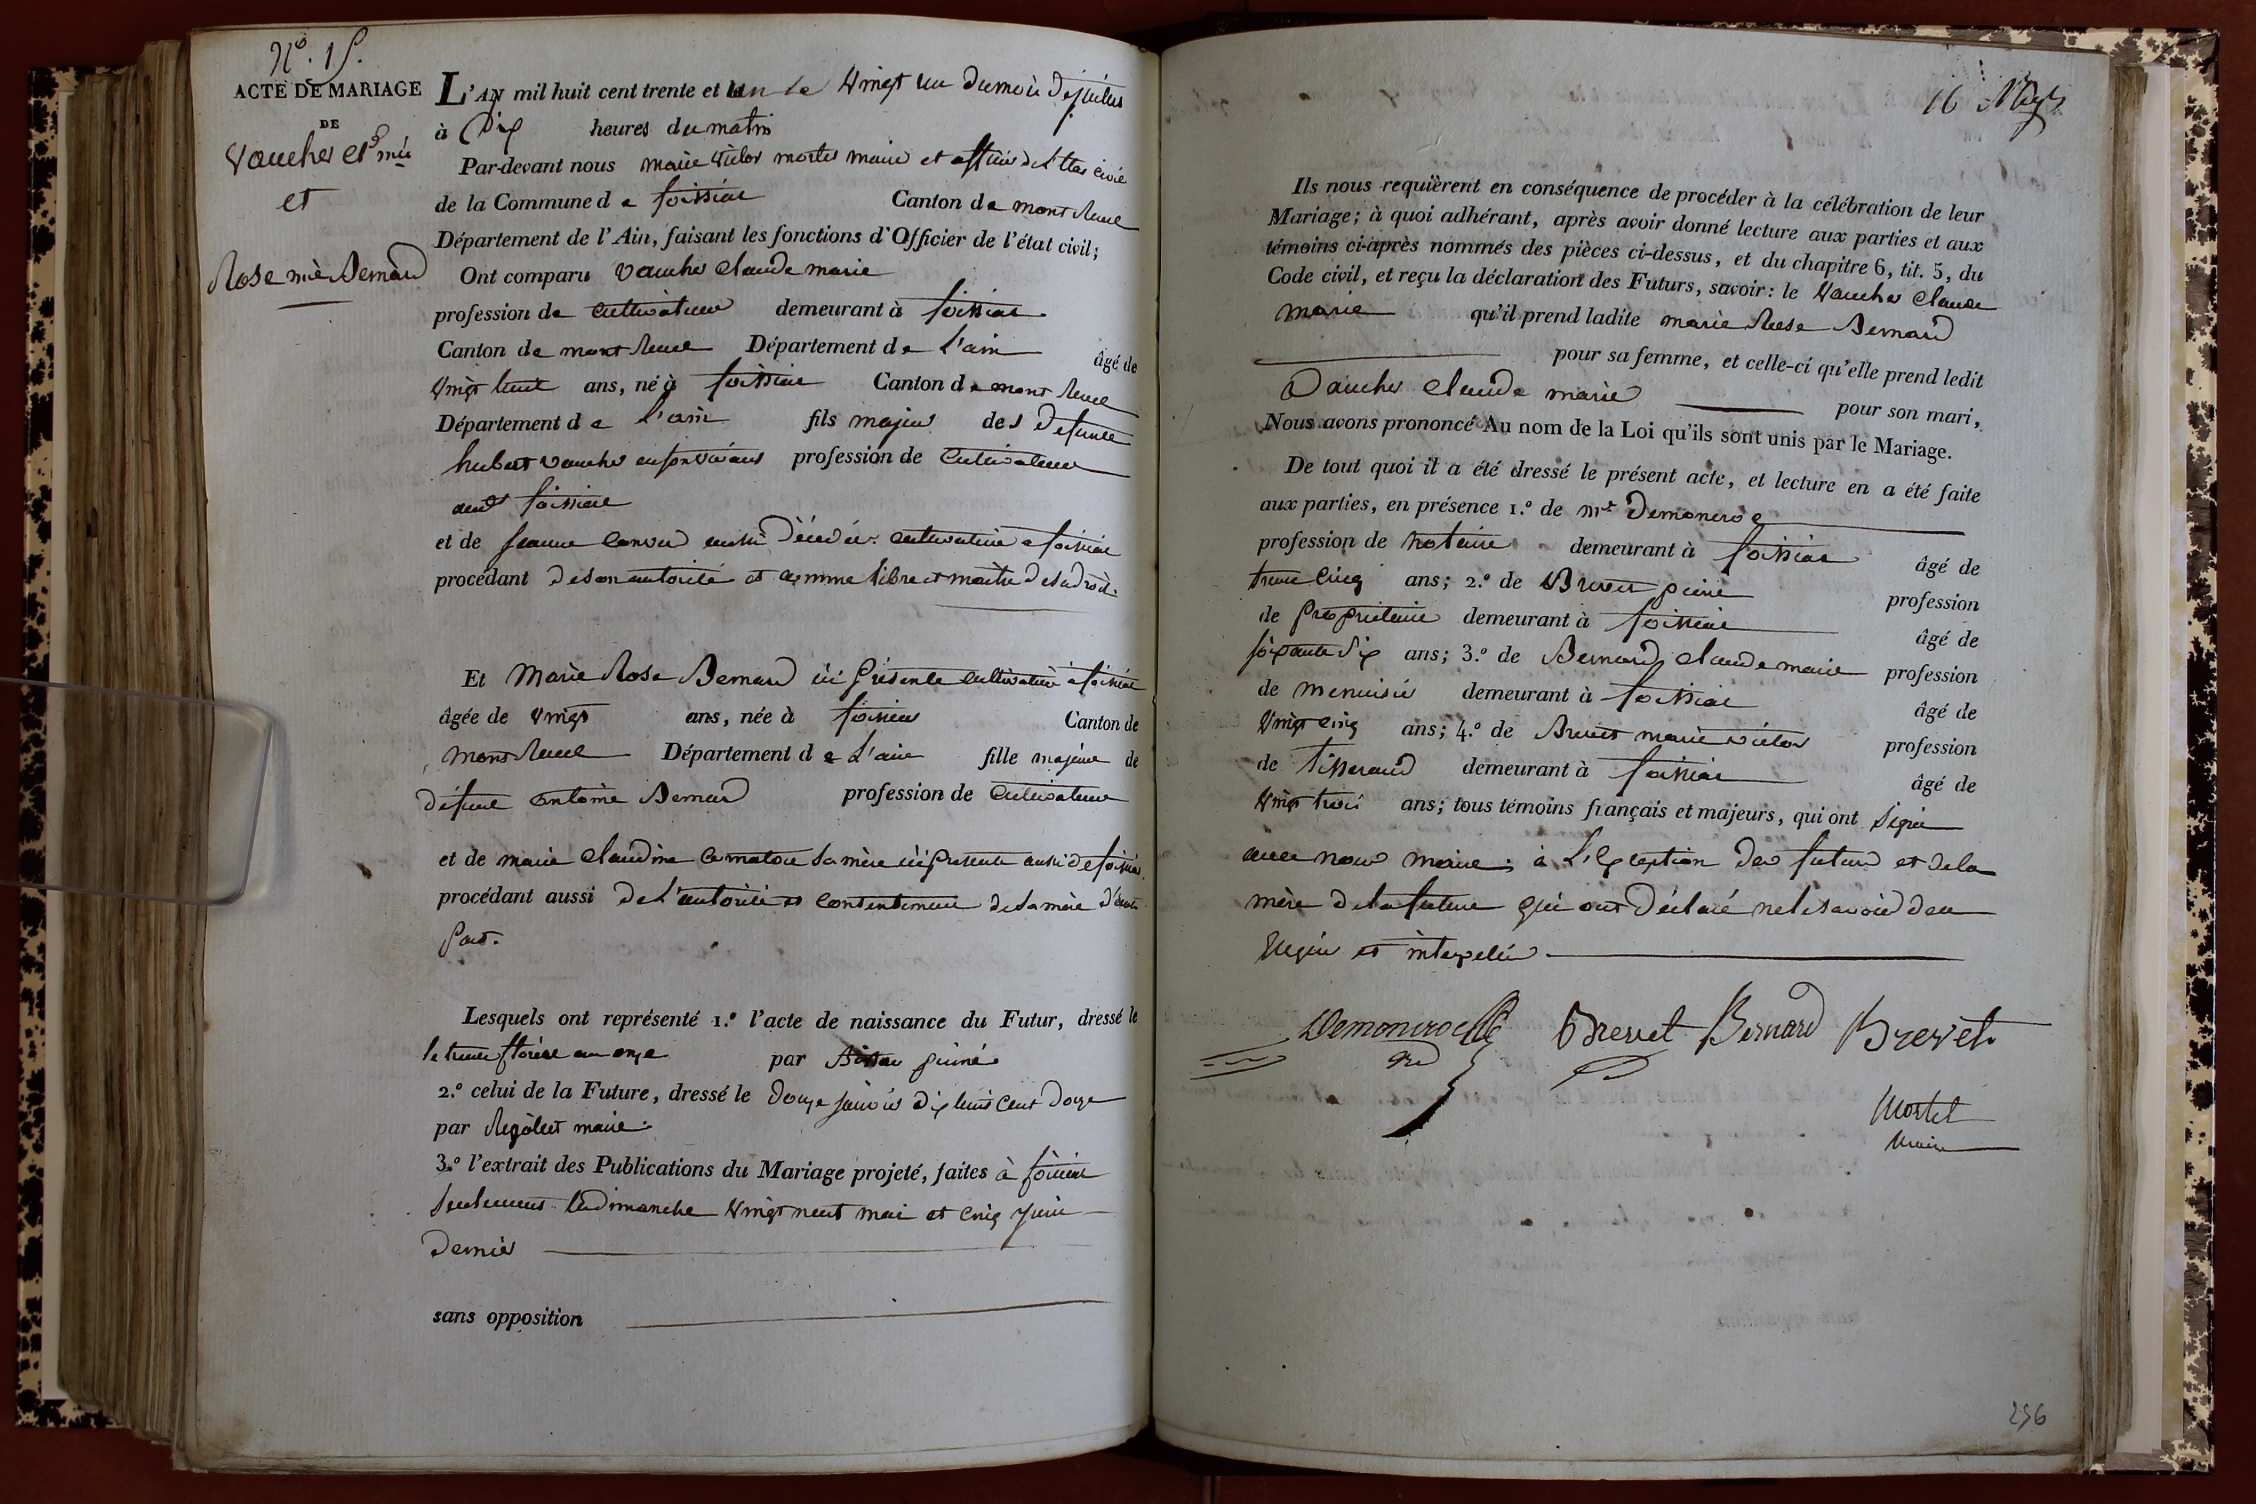 N.o 15.
ACTE DE MARIAGE
DE
Vaucher Cl.de mie
et
Rose mie Bernard
L'AN mil huit cent trente et un le vingt un du mois de juillet
à Dix heures du matin
Par-devant nous marie victor mortel maire et officier de l'état civil
de la Commune de foissiat Canton de montrevel
Département de l'Ain, faisant les fonctions d'Officier de l'état civil;
Ont comparu vaucher Claude marie
profession de cultivateur demeurant à foissiat
Canton de montrevel Département de L'ain âgé de
vingt huit ans, né à foissiat Canton de montrevel
Département de L'ain fils majeur des defunts
hubert vaucher en son vivant profession de Cultivateur
audt foissiat
et de jeanne aussi décédée cultivatrice a foissiat
procédant de son autorité et comme libre et maître de ses droits.
Et Marie Rose Bernard ici présente cultivatrice à foissiat
âgée de vingt ans, née à foissiat Canton de
montrevel Département de L'ain fille majeure de
défunt antoine Bernard profession de Cultivateur
et de marie claudine sa mère ici présente aussi de foissiat
procédant aussi de L'autorité et consentement de sa mère d'autre
part.
Lesquels ont représenté 1.o l'acte de naissance du Futur, dressé le
le trente floréal an onze par
2.o celui de la Future, dressé le douze janvier dix huit cent douze
par maire.
3.o l'extrait des Publications du Mariage projeté, faites à foissiat
seulement les dimanche vingt neuf mai et cinq juin
dernier
sans opposition
16
Ils nous requièrent en conséquence de procéder à la célébration de leur
Mariage; à quoi adhérant, après avoir donné lecture aux parties et aux
témoins ci-après nommés des pièces ci-dessus, et du chapitre 6, tit. 5, du
Code civil, et reçu la déclaration des Futurs, savoir: le Vaucher Claude
marie qu'il prend ladite marie Rose Bernard
pour sa femme, et celle-ci qu'elle prend ledit
Vaucher claude marie pour son mari,
Nous avons prononcé Au nom de la Loi qu'ils sont unis par le Mariage.
De tout quoi il a été dressé le présent acte, et lecture en a été faite
aux parties, en présence 1.o de mr Demoncroc
profession de notaire demeurant à foissiat âgé de
trente cinq ans; 2.o de Brevet pierre profession
de propriétaire demeurant à foissiat âgé de
soixante dix ans; 3.o de Bernard claude marie profession
de menuisier demeurant à foissiat âgé de
vingt cinq ans; 4.o de Brevet marie victor profession
de Tisserand demeurant à foissiat âgé de
vingt trois ans; tous témoins français et majeurs, qui ont signé
avec nous maire; à L'exception des futurs et de la
mère de la future qui ont déclaré ne le savoir de ce
requis et interpelés
Brevet Bernard Brevet
Mortel
Maire
256